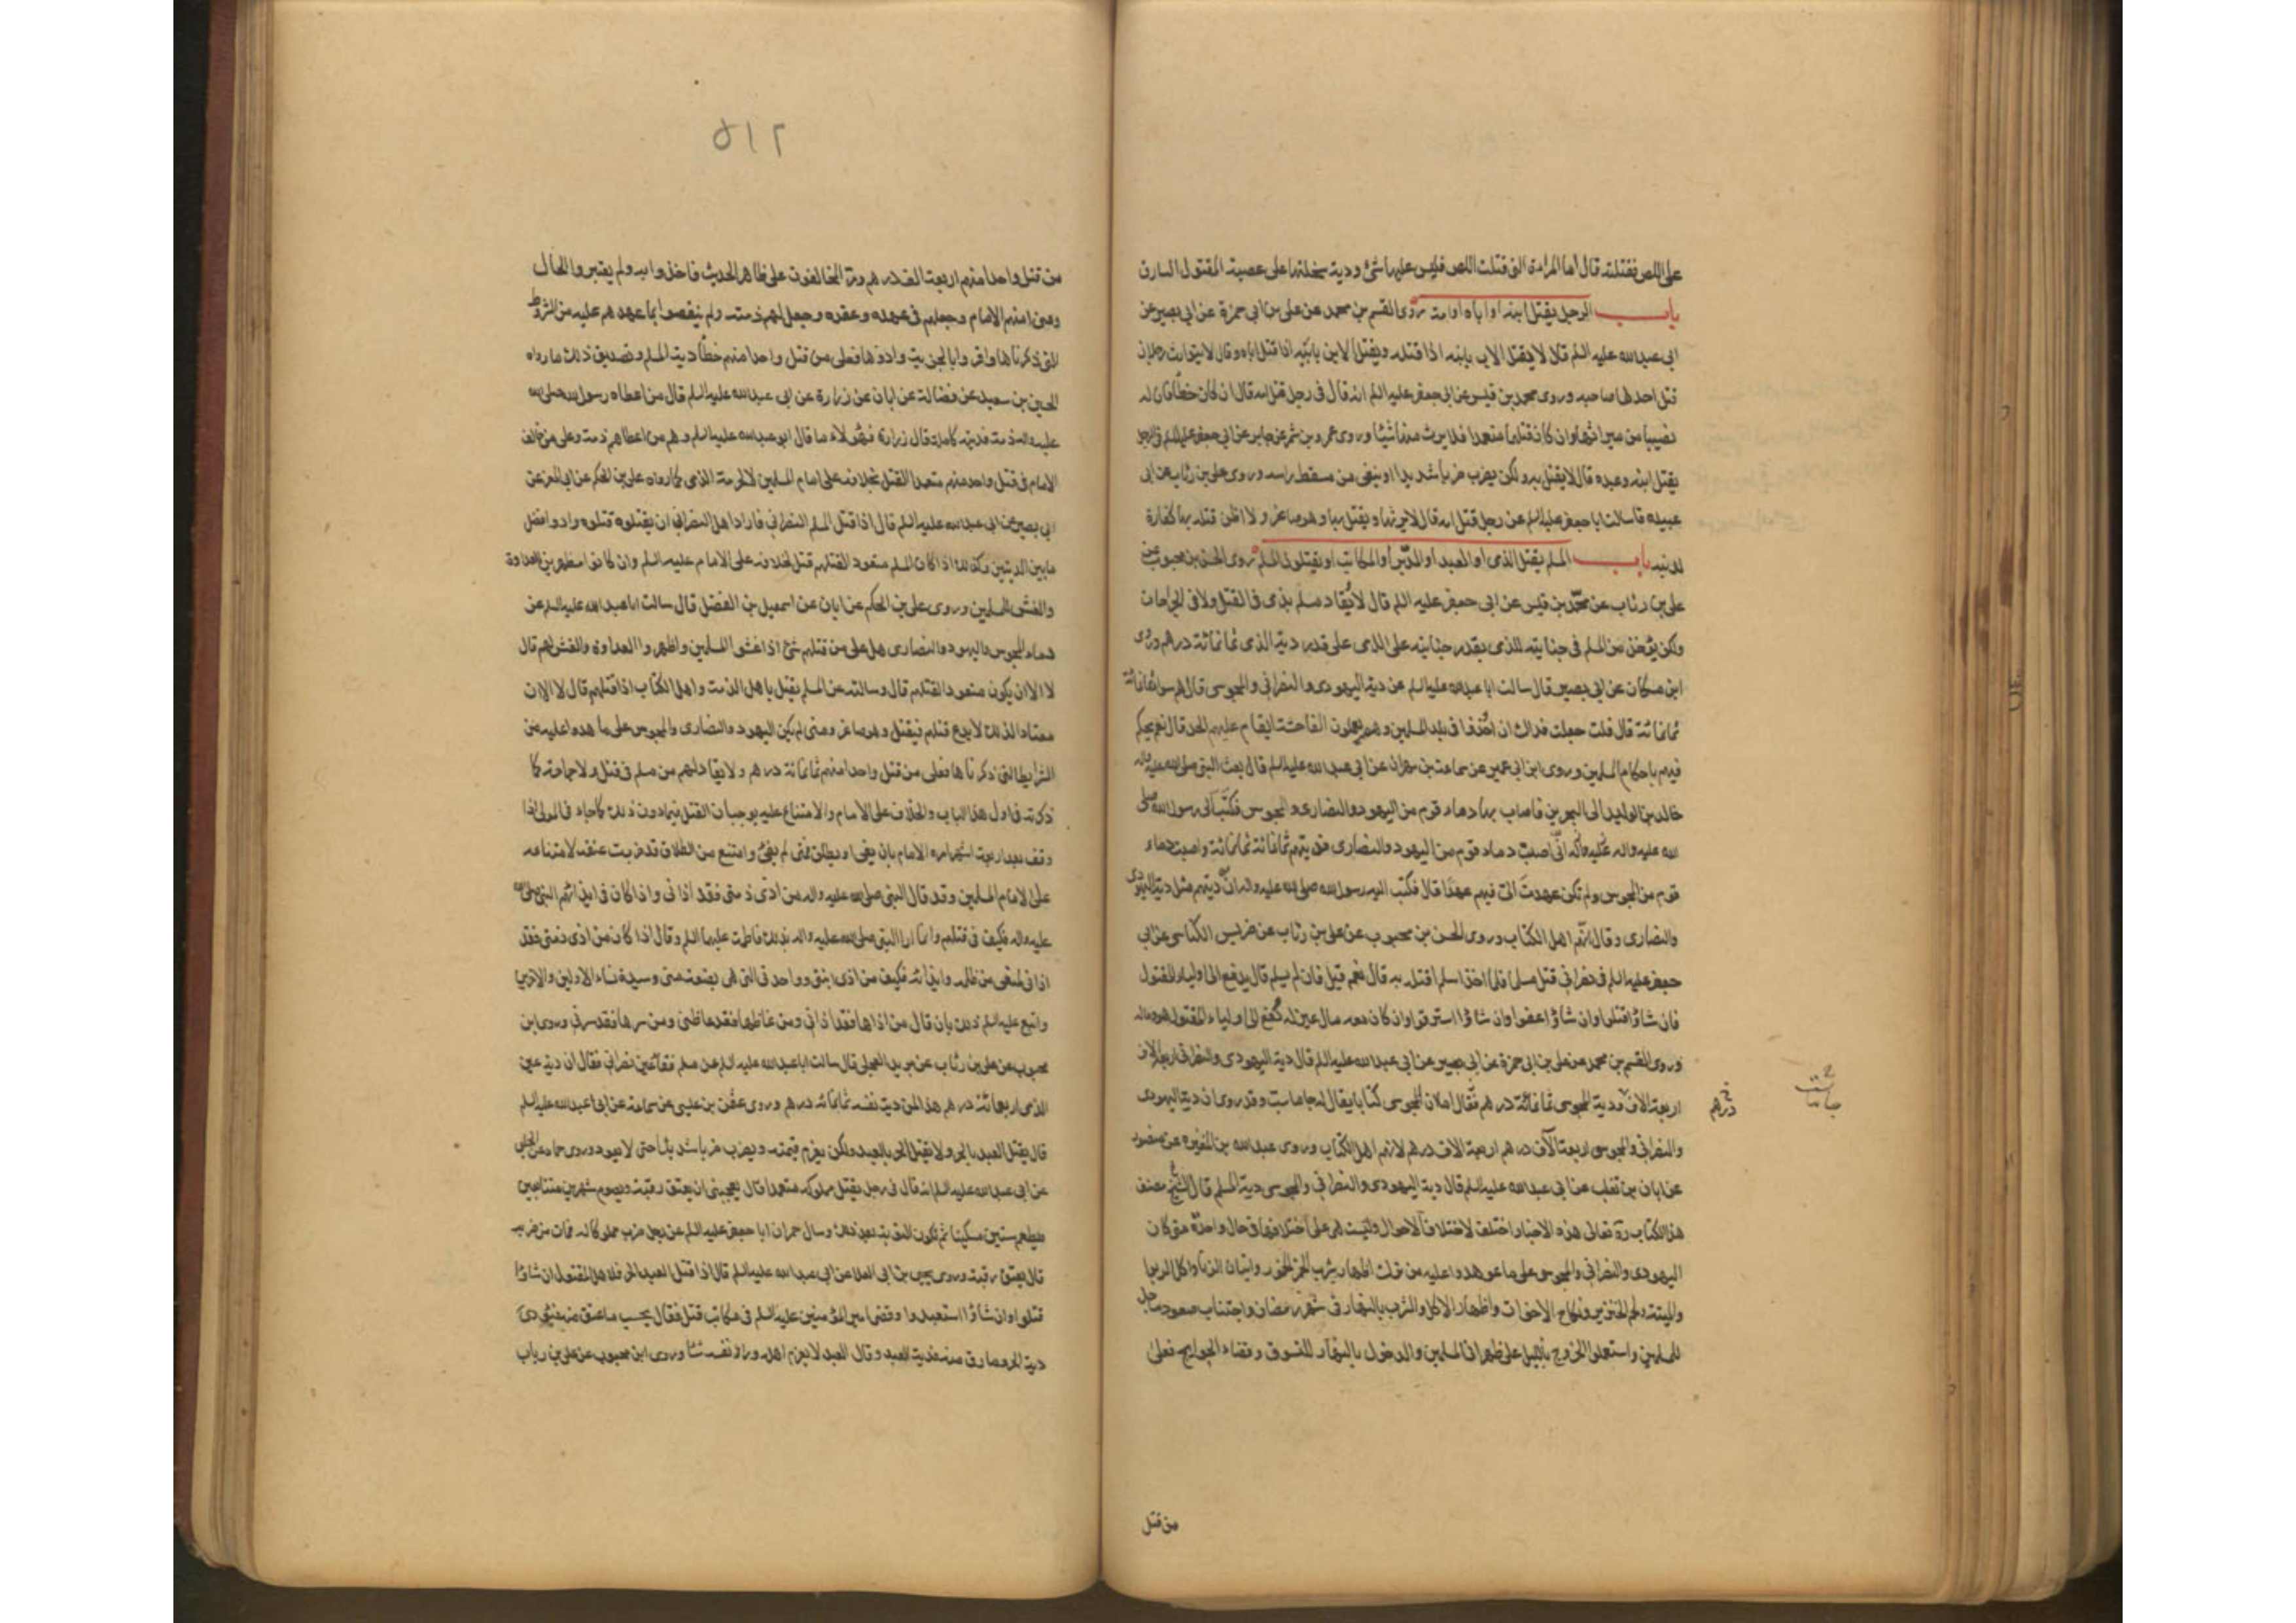 على اللص فقتلته قال اما المراءة التى قتلت اللص فليس عليها شئ ودية سخلتها على عصبة المقتول السارق
باب الرجل يقتل ابنه او اباه او امه روى القسم بن محمد عن على بن ابى حمزة عن ابى بصير عن
ابى عبدالله عليه السلم قال لا يقتل الاب بابنه اذا قتله ويقتل الابن بابيه اذا قتل اباه وقال لا يتوارث رجلان
قتل احدهما صاحبه وروى محمد بن قيس عن ابى جعفر عليه السلم انه قال فى رجل قتل امه قال ان كان خطأ فان له
نصيبا من ميراثها وان كان قتلها متعمدا فلا يرث منها شيئا وروى عمرو بن شمر عن جابر عن ابى جعفر عليه السلم فى الرجل
يقتل ابنه وعبده قال لا يقتل به ولكن يضرب ضربا شديدا وينفى من مسقط راسه وروى على بن رئاب عن ابى
عبيده قا سالت ابا جعفر عليه السلم عن رجل قتل امه قال لا يرثها ويقتل بها وهو صاغر ولا اظن قتله بها كفارة
لذنبه باب المسلم يقتل الذمى او العبد او المدبر او المكاتب او يقتلون المسلم روى الحسن بن محبوب عن
على بن رئاب عن محمد بن قيس عن ابى جعفر عليه السلم قال لا يُقاد مسلم بذمى فى القتل ولا فى الجراحات
ولكن يؤخذ من المسلم فى جنايته للذمى بقدر جنايته على الذمى على قدر دية الذمى ثمانمائة درهم وروى
ابن مسكان عن ابى بصير قال سالت ابا عبدالله عليه السلم عن دية اليهودى والنصرانى والمجوسى قال هم سواء ثمانمائة
ثمانمائة قال قلت جعلت فداك ان اخذوا فى بلد المسلمين وهم يعملون الفاحشة ايقام عليهم الحد قال نعم يحكم
فيهم باحكام المسلمين وروى ابن ابى عمير عن سماعة بن مهران عن ابى عبدالله عليه السلم قال بعث النبى صلى الله عليه واله
خالد بن الوليد الى البحرين فاصاب بها دماء قوم من اليهود والنصارى والمجوس فكتب الى رسول الله صلى
الله عليه واله انى اصبت دماء قوم من اليهود والنصارى فوديتهم ثمانمائة ثمانمائة واصبت دماء
قوم من المجوس ولم تكن عهدت الى فيهم عهدا قال فكتب اليه رسول الله صلى الله عليه واله ان ديتهم مثل دية اليهودى
والنصارى وقال انهم اهل الكتاب وروى الحسن بن محبوب عن على بن رئاب عن ضريس الكناسى عن ابى
جعفر عليه السلم فى نصرانى قتل مسلما فلما اخذ اسلم اقتله به قال نعم قيل فان لم يسلم قال يدفع الى اولياء المقتول
فان شاؤا قتلوا وان شاؤا عفوا وان شاؤا استرقوا وان كان معه مال عين له دُفع الى اولياء المقتول هو وماله
وروى القسم بن محمد عن على بن ابى حمزة عن ابى بصير عن ابى عبدالله عليه السلم قال دية اليهودى والنصرانى اربعة الاف
اربعة الاف ودية المجوسى ثمانمائة درهم وقال اما ان للمجوسى كتابا يقال له جاماست وقد روى ان دية اليهودى
والنصرانى والمجوسى اربعة آلاف درهم اربعة الاف درهم لانهم اهل الكتاب وروى عبدالله بن المغيره عن منصور
عن ابان بن تغلب عن ابى عبدالله عليه السلم قال دية اليهودى والنصرانى والمجوسى دية المسلم قال الشيخ مصنف
هذا الكتاب ره تعالى هذه الاخبار اختلفت لاختلاف الاحوال وليست هى على اختلافها فى حال واحدة متى كان
اليهودى والنصرانى والمجوسى على ما عوهدوا عليه من ترك اظهار شرب الخمور واتيان الزنا واكل الربوا
والميتة ولحم الخنزير ونكاح الاخوات واظهار الاكل والشرب بالنهار فى شهر رمضان واجتناب صعود مساجد
المسلمين واستعملوا الخروج بالليل عن ظهرانى المسلمين والدخول بالنهار للتسوق وقضاء الحوايج فعلى
درهم
جاماست
من قتل
٥١٢
من قتل واحدا منهم اربعة الف درهم ومر المخالفون على ظاهر الحديث فاخذوا به ولم يعتبروا الحال
ومتى امنهم الامام وجعلهم فى عهده وعقده وجعل لهم ذمته ولم ينقضوا ما عهدهم عليه من الشروط
التى ذكرناها واقروا بالجزية وادوها فعلى من قتل واحدا منهم خطأ دية المسلم وتصديق ذلك ما رواه
الحسين بن سعيد عن فضالة عن ابان عن زرارة عن ابى عبدالله عليه السلم قال من اعطاه رسول الله صلى الله
عليه واله ذمة فديته كاملة قال زرارة فهؤلاء ما قال ابو عبدالله عليه السلم وهم من اعطاهم ذمة وعلى من خالف
الامام فى قتل واحد منهم متعمدا القتل بخلافه على امام المسلمين لا لحرمة الذمى كما رواه على بن الحكم عن ابى المعز عن
ابى بصير عن ابى عبدالله عليه السلم قال اذا قتل المسلم النصرانى فاراد اهل النصرانى ان يقتلوه قتلوه وادوا فضل
ما بين الديتين وكذلك اذا كان المسلم متعود القتلهم قتل لخلافه على الامام عليه السلم وان كانوا مظهرين العداوة
والغش للمسلمين وروى على بن الحكم عن ابان عن اسمعيل بن الفضل قال سالت ابا عبدالله عليه السلم عن
دماء المجوس واليهود والنصارى هل على من قتلهم شئ اذا غشوا المسلمين واظهروا العداوة والغش لهم قال
لا الا ان يكون متعودا لقتلهم قال وسالته عن المسلم يقتل باهل الذمة واهل الكتاب اذا قتلهم قال لا الا ان
معتادا لذلك لا يدع قتلهم فيقتل وهو صاغر ومتى لم يكن اليهود والنصارى والمجوس على ما عهدوا عليه من
الشرايط التى ذكرناها فعلى من قتل واحدا منهم ثمانمائة درهم ولا يقاد لهم من مسلم فى قتل ولا جراحة كما
ذكرته فى اول هذا الباب والخلاف على الامام والامتناع عليه يوجبان القتل فيما دون ذلك كما جاء فى المولى اذا
وقف بعد اربعة اشهر امره الامام بان يفى او يطلق فمتى لم يفئ وامتنع من الطلاق ضربت عنقه لامتناعه
على امام المسلمين وقد قال النبى صلى الله عليه واله من اذى ذمتى فقد اذانى واذا كان فى ايذائهم النبى صلى الله
عليه واله فكيف فى قتلهم وانما اراد النبى صلى الله عليه واله بذلك فاطمة عليها السلم وقال اذا كان من اذى ذمتى فقد
اذانى لمنعى من ظلمه وايذائه فكيف من اذى ابنتى وواحدتى التى هى بضعة منى وسيدة نساء الاولين والاخرين
واتبع عليه السلم ذلك بان قال من اذاها فقد اذانى ومن غاظها فقد غاظنى ومن سرها فقد سرنى وروى ابن
محبوب عن على بن رئاب عن بريد العجلى قال سالت ابا عبدالله عليه السلم عن مسلم فقأ عين نصرانى فقال ان دية عين
الذمى اربعمائة درهم هذا لمن دية نفسه ثمانمائة درهم وروى عثمن بن عيسى عن سماعة عن ابى عبدالله عليه السلم
قال يقتل العبد بالحر ولا يقتل الحر بالعبد ولكن يغرم قيمته ويضرب ضربا شديدا حتى لا يعود وروى حماد عن الحلبى
عن ابى عبدالله عليه السلم انه قال فى رجل يقتل مملوكه متعمدا قال يعجبنى ان يعتق رقبة ويصوم شهرين متتابعين
ويطعم ستين مسكينا ثم تكون التوبة بعد ذلك وسال حمران ابا جعفر عليه السلم عن رجل ضرب مملوكا له فمات من ضربه
قال يعتق رقبة وروى يحيى بن ابى العلا عن ابى عبدالله عليه السلم قال اذا قتل العبد الحر فلاهل المقتول ان شاؤا
قتلوا وان شاؤا استعبدوا وقضى امير المؤمنين عليه السلم فى مكاتب قتل فقال يحسب ما عتق منه فيؤدى
دية الحر وما رق منه فدية العبد وقال العبد لا يغرم اهله وراء نفسه شئا وروى ابن محبوب عن على بن رياب